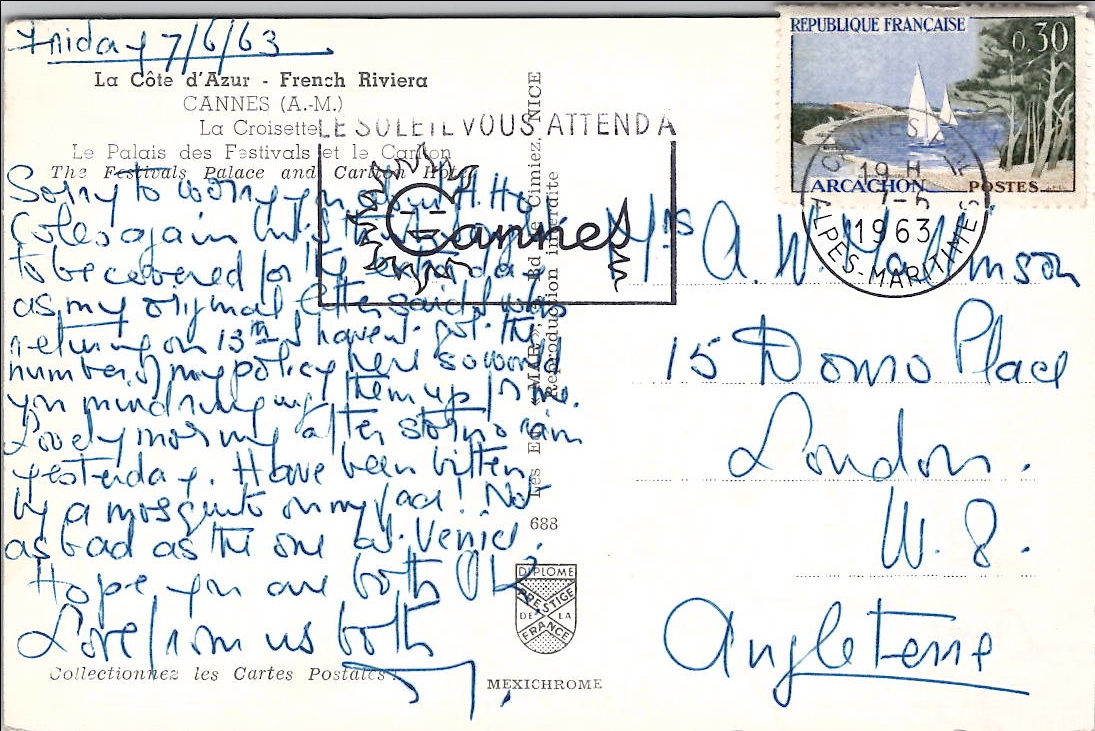 Friday 7/6/63
La Côte d'Azur - French Riviera
CANNES (A.-M.)
La Croisette
Le Palais des Festivals et le Carlton
The Festivals Palace and Carlton Hotel
Sorry to worry you about
Coles again but
to be covered for the
as my original letter said I was
returning on 13th I haven't got the
number of my policy here so would
you mind ringing them up for me.
Lovely morning after storm & rain
yesterday. Have been bitten
by a mosquito on my face! Not
as bad as the one at Venice.
Hope you are both O.K.
Love from us both
Collectionnez les Cartes Postales !
LE SOLEIL VOUS ATTEND A
Cannes
Reproduction interdite
688
DIPLOME
PRESTIGE
DE LA
FRANCE
MEXICHROME
REPUBLIQUE FRANÇAISE
0,30
ARCACHON POSTES
CANNES
19 H
7-6
1963
ALPES-MARITIMES
Mrs A. W.
15 Place
London.
W. 8.
Angleterre